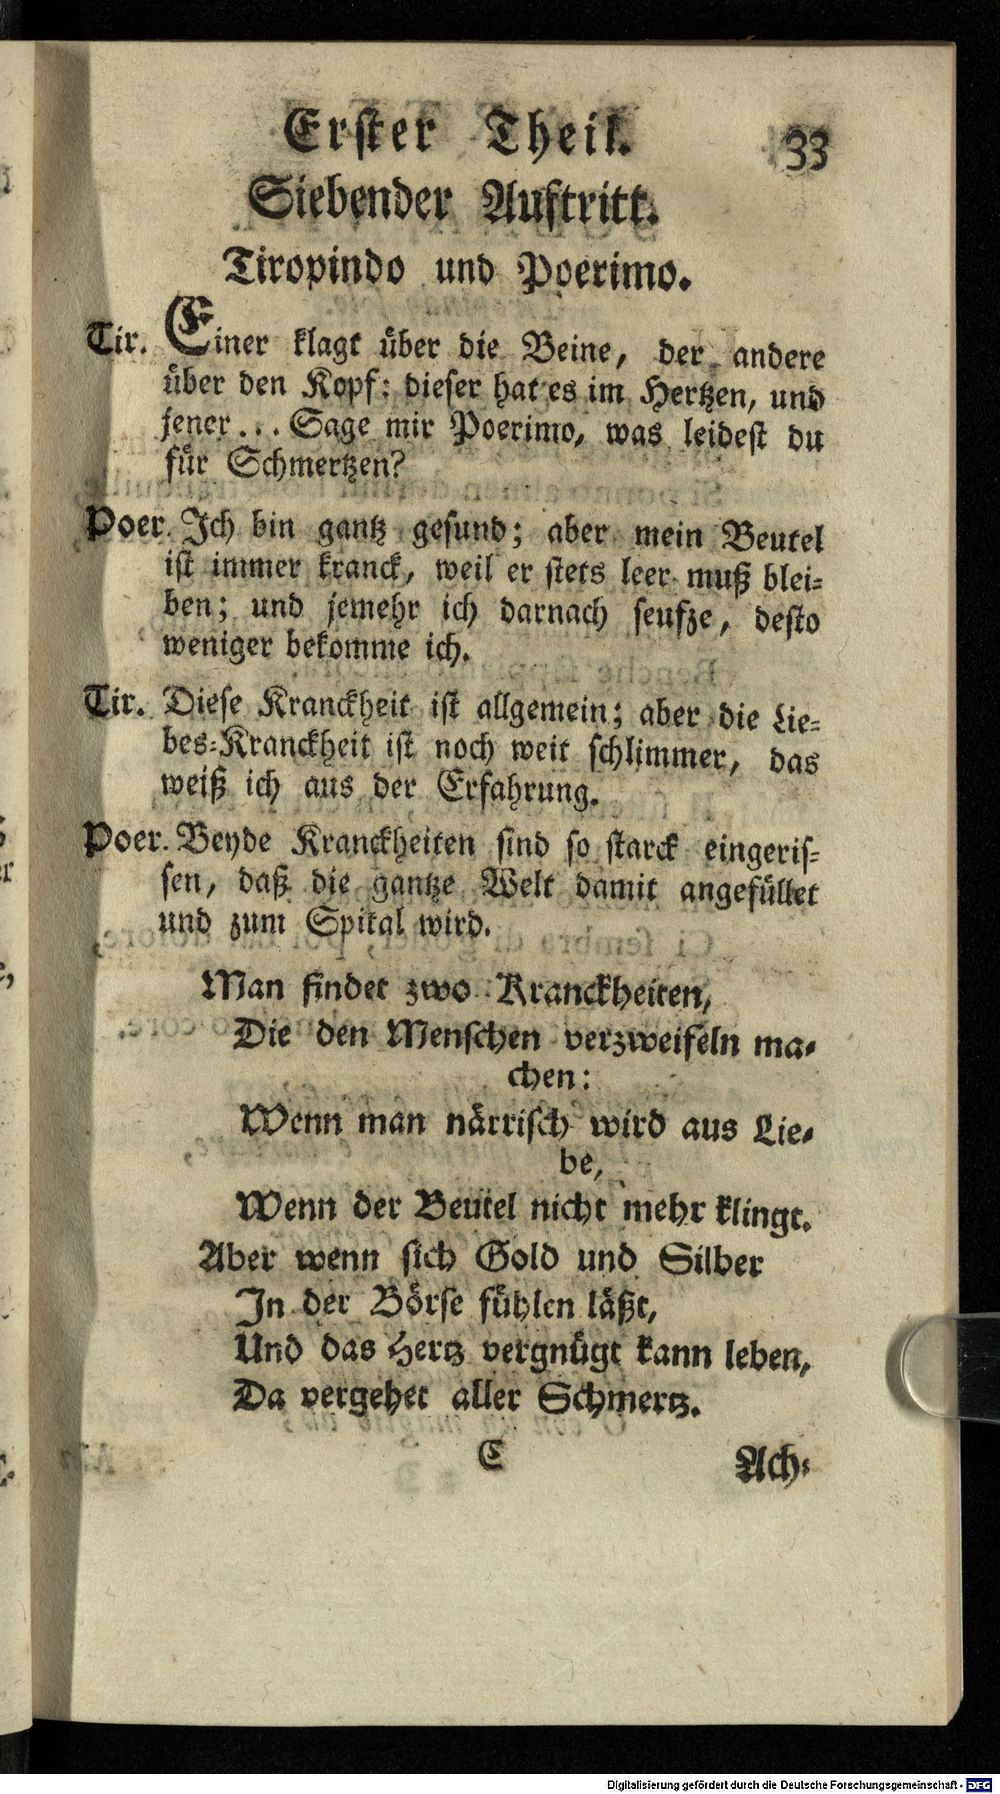 Erster Theil. 33
Siebender Auftritt.
Tiropindo und Poerimo.
Tir. Einer klagt über die Beine, der andere
über den Kopf: dieser hat es im Hertzen, und
jener... Sage mir Poerimo, was leidest du
für Schmertzen?
Poer. Ich bin gantz gesund; aber mein Beutel
ist immer kranck, weil er stets leer muß blei-
ben; und jemehr ich darnach seufze, desto
weniger bekomme ich.
Tir. Diese Kranckheit ist allgemein; aber die Lie-
bes-Kranckheit ist noch weit schlimmer, das
weiß ich aus der Erfahrung.
Poer. Beyde Kranckheiten sind so starck eingeris-
sen, daß die gantze Welt damit angefüllet
und zum Spital wird.
Man findet zwo Kranckheiten,
Die den Menschen verzweifeln ma-
chen:
Wenn man närrisch wird aus Lie-
be,
Wenn der Beutel nicht mehr klingt.
Aber wenn sich Gold und Silber
In der Börse fühlen läßt,
Und das Hertz vergnügt kann leben,
Da vergehet aller Schmertz.
C Ach-
Digitalisierung gefördert durch die Deutsche Forschungsgemeinschaft - DFG